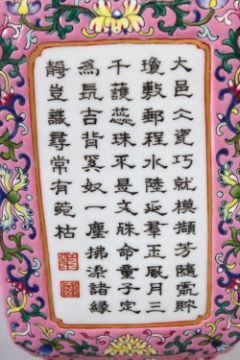 大邑冬瓷巧就模擷芳隨處貯
瓊敷郵程水陸延羣玉風月三
千護蕊珠不是文殊命童子定
為長吉背奚奴一塵拂染諸緣
靜豈識尋常有菀枯